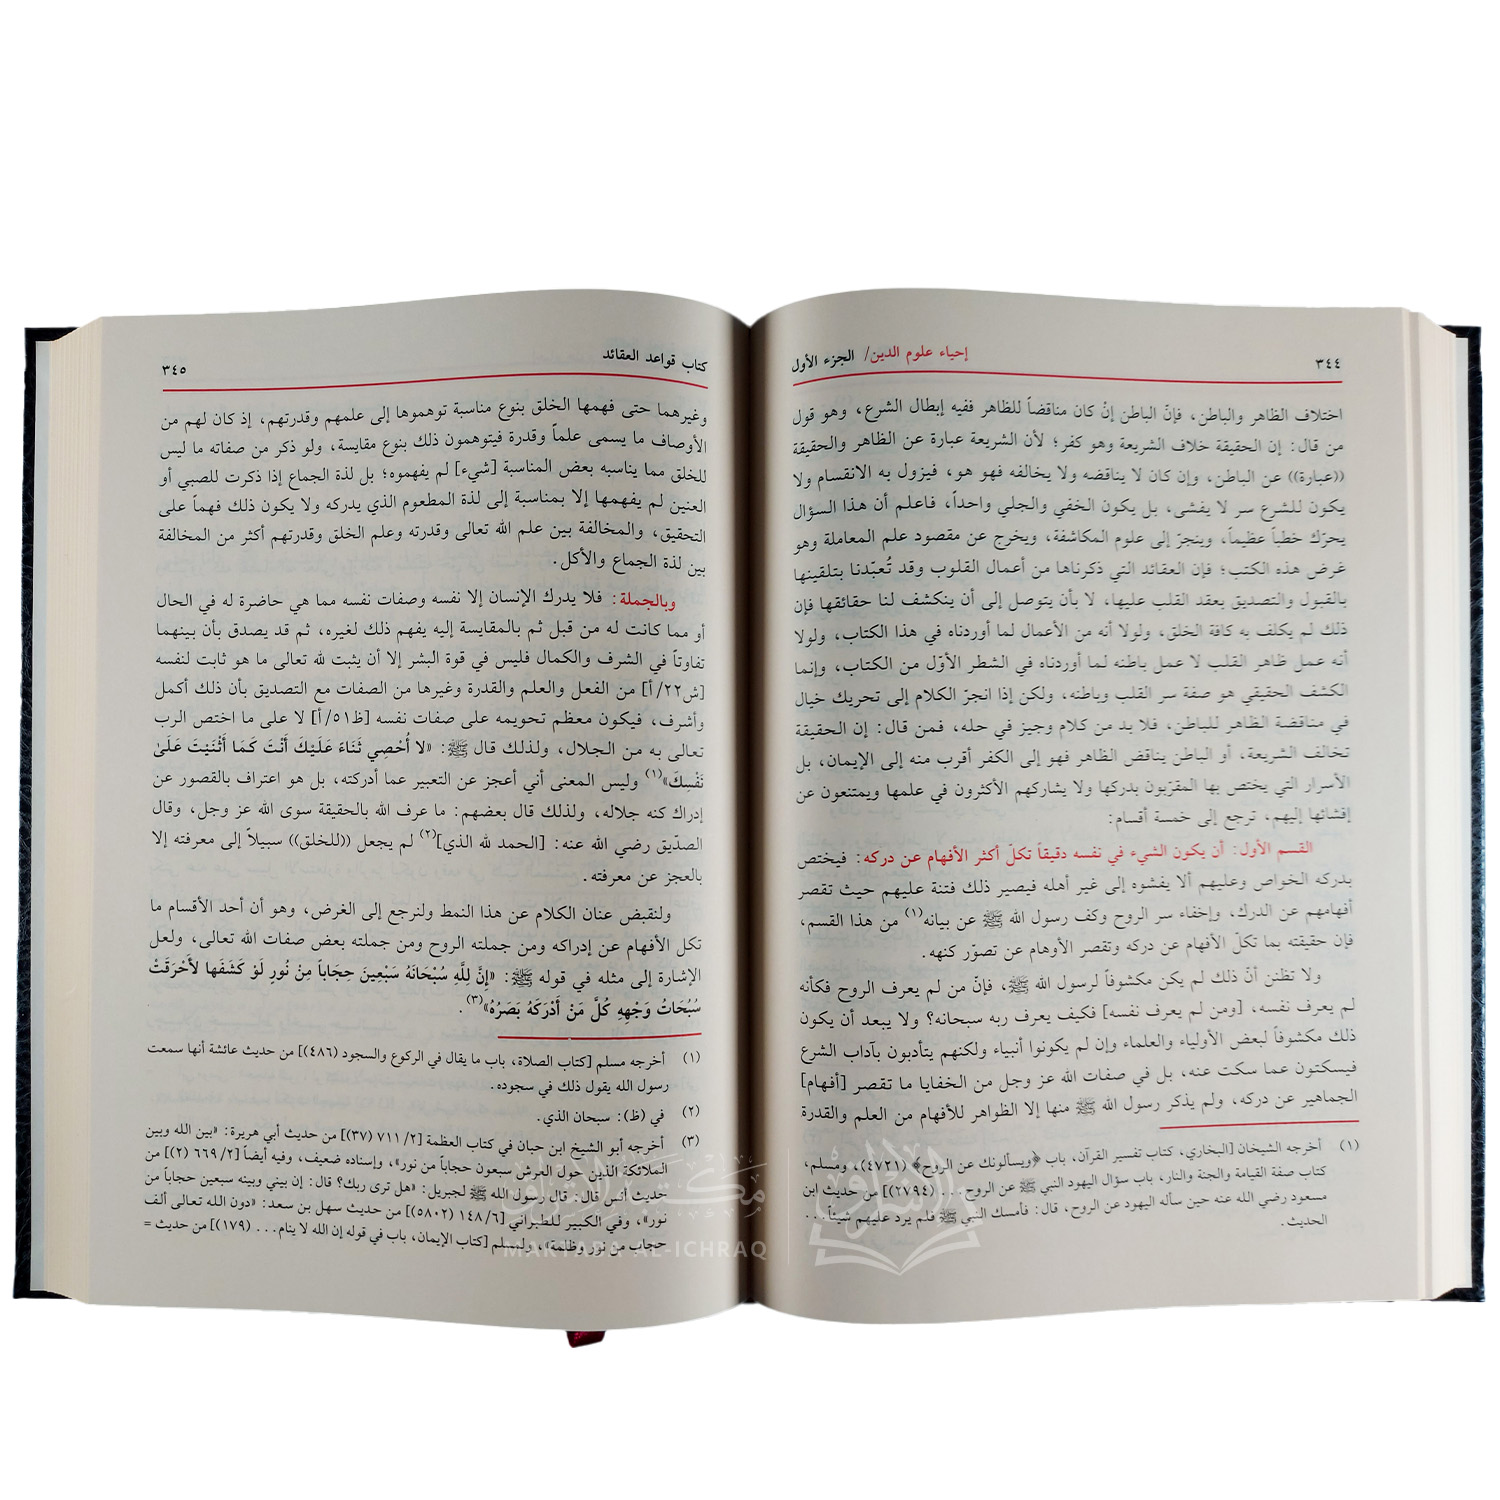 ٣٤٤ إحياء علوم الدين/ الجزء الأول
اختلاف الظاهر والباطن، فإنّ الباطن إنْ كان مناقضاً للظاهر ففيه إبطال الشرع، وهو قول
من قال: إن الحقيقة خلاف الشريعة وهو كفر؛ لأن الشريعة عبارة عن الظاهر والحقيقة
((عبارة)) عن الباطن، وإن كان لا يناقضه ولا يخالفه فهو هو، فيزول به الانقسام ولا
يكون للشرع سر لا يفشى، بل يكون الخفي والجلي واحداً، فاعلم أن هذا السؤال
يحرّك خطباً عظيماً، وينجرّ إلى علوم المكاشفة، ويخرج عن مقصود علم المعاملة وهو
غرض هذه الكتب؛ فإن العقائد التي ذكرناها من أعمال القلوب وقد تُعبّدنا بتلقينها
بالقبول والتصديق بعقد القلب عليها، لا بأن يتوصل إلى أن ينكشف لنا حقائقها فإن
ذلك لم يكلف به كافة الخلق، ولولا أنه من الأعمال لما أوردناه في هذا الكتاب، ولولا
أنه عمل ظاهر القلب لا عمل باطنه لما أوردناه في الشطر الأوّل من الكتاب، وإنما
الكشف الحقيقي هو صفة سر القلب وباطنه، ولكن إذا انجرّ الكلام إلى تحريك خيال
في مناقضة الظاهر للباطن، فلا بد من كلام وجيز في حله، فمن قال: إن الحقيقة
تخالف الشريعة، أو الباطن يناقض الظاهر فهو إلى الكفر أقرب منه إلى الإيمان، بل
الأسرار التي يختص بها المقرّبون بدركها ولا يشاركهم الأكثرون في علمها ويمتنعون عن
إفشائها إليهم، ترجع إلى خمسة أقسام:
القسم الأول: أن يكون الشيء في نفسه دقيقاً تكلّ أكثر الأفهام عن دركه: فيختص
بدركه الخواص وعليهم ألا يفشوه إلى غير أهله فيصير ذلك فتنة عليهم حيث تقصر
أفهامهم عن الدرك، وإخفاء سر الروح وكف رسول الله ﷺ عن بيانه(١) من هذا القسم،
فإن حقيقته بما تكلّ الأفهام عن دركه وتقصر الأوهام عن تصوّر كنهه.
ولا تظنن أنّ ذلك لم يكن مكشوفاً لرسول الله ﷺ، فإنّ من لم يعرف الروح فكأنه
لم يعرف نفسه، [ومن لم يعرف نفسه] فكيف يعرف ربه سبحانه؟ ولا يبعد أن يكون
ذلك مكشوفاً لبعض الأولياء والعلماء وإن لم يكونوا أنبياء ولكنهم يتأدبون بآداب الشرع
فيسكتون عما سكت عنه، بل في صفات الله عز وجل من الخفايا ما تقصر [أفهام]
الجماهير عن دركه، ولم يذكر رسول الله ﷺ منها إلا الظواهر للأفهام من العلم والقدرة
(١) أخرجه الشيخان [البخاري، كتاب تفسير القرآن، باب ﴿ويسألونك عن الروح﴾ (٤٧٢١)، ومسلم،
كتاب صفة القيامة والجنة والنار، باب سؤال اليهود النبي ﷺ عن الروح... (٢٧٩٤)] من حديث ابن
مسعود رضي الله عنه حين سأله اليهود عن الروح، قال: فأمسك النبي ﷺ فلم يرد عليهم شيئاً...
الحديث.
كتاب قواعد العقائد ٣٤٥
وغيرهما حتى فهمها الخلق بنوع مناسبة توهموها إلى علمهم وقدرتهم، إذ كان لهم من
الأوصاف ما يسمى علماً وقدرة فيتوهمون ذلك بنوع مقايسة، ولو ذكر من صفاته ما ليس
للخلق مما يناسبه بعض المناسبة [شيء] لم يفهموه؛ بل لذة الجماع إذا ذكرت للصبي أو
العنين لم يفهمها إلا بمناسبة إلى لذة المطعوم الذي يدركه ولا يكون ذلك فهماً على
التحقيق، والمخالفة بين علم الله تعالى وقدرته وعلم الخلق وقدرتهم أكثر من المخالفة
بين لذة الجماع والأكل.
وبالجملة: فلا يدرك الإنسان إلا نفسه وصفات نفسه مما هي حاضرة له في الحال
أو مما كانت له من قبل ثم بالمقايسة إليه يفهم ذلك لغيره، ثم قد يصدق بأن بينهما
تفاوتاً في الشرف والكمال فليس في قوة البشر إلا أن يثبت لله تعالى ما هو ثابت لنفسه
[ش٢٢/أ] من الفعل والعلم والقدرة وغيرها من الصفات مع التصديق بأن ذلك أكمل
وأشرف، فيكون معظم تحويمه على صفات نفسه [ظ٥١/أ] لا على ما اختص الرب
تعالى به من الجلال، ولذلك قال ﷺ: «لا أُحْصِي ثَنَاءً عَلَيْكَ أَنْتَ كَمَا أَثْنَيْتَ عَلَىٰ
نَفْسِكَ»(١) وليس المعنى أني أعجز عن التعبير عما أدركته، بل هو اعتراف بالقصور عن
إدراك كنه جلاله، ولذلك قال بعضهم: ما عرف الله بالحقيقة سوى الله عز وجل، وقال
الصدّيق رضي الله عنه: [الحمد لله الذي](٢) لم يجعل ((للخلق)) سبيلاً إلى معرفته إلا
بالعجز عن معرفته.
ولنقبض عنان الكلام عن هذا النمط ولنرجع إلى الغرض، وهو أن أحد الأقسام ما
تكل الأفهام عن إدراكه ومن جملته الروح ومن جملته بعض صفات الله تعالى، ولعل
الإشارة إلى مثله في قوله ﷺ: «إِنَّ لِلَّهِ سُبْحَانَهُ سَبْعِينَ حِجَاباً مِنْ نُورٍ لَوْ كَشَفَها لأَحْرَقَتْ
سُبُحَاتُ وَجْهِهِ كُلَّ مَنْ أَدْرَكَهُ بَصَرُهُ»(٣).
(١) أخرجه مسلم [كتاب الصلاة، باب ما يقال في الركوع والسجود (٤٨٦)] من حديث عائشة أنها سمعت
رسول الله يقول ذلك في سجوده.
(٢) في (ظ): سبحان الذي.
(٣) أخرجه أبو الشيخ ابن حبان في كتاب العظمة [٧١١/٢ (٣٧)] من حديث أبي هريرة: «بين الله وبين
الملائكة الذين حول العرش سبعون حجاباً من نور»، وإسناده ضعيف، وفيه أيضاً [٦٦٩/٢ (٢)] من
حديث أنس قال: قال رسول الله ﷺ لجبريل: «هل ترى ربك؟ قال: إن بيني وبينه سبعين حجاباً من
نور»، وفي الكبير للطبراني [١٤٨/٦ (٥٨٠٢)] من حديث سهل بن سعد: «دون الله تعالى ألف
حجاب من نور وظلمة»، ولمسلم [كتاب الإيمان، باب في قوله إن الله لا ينام... (١٧٩)] من حديث =
مكتبة الإشراق
MAKTABA AL-ICHRAQ